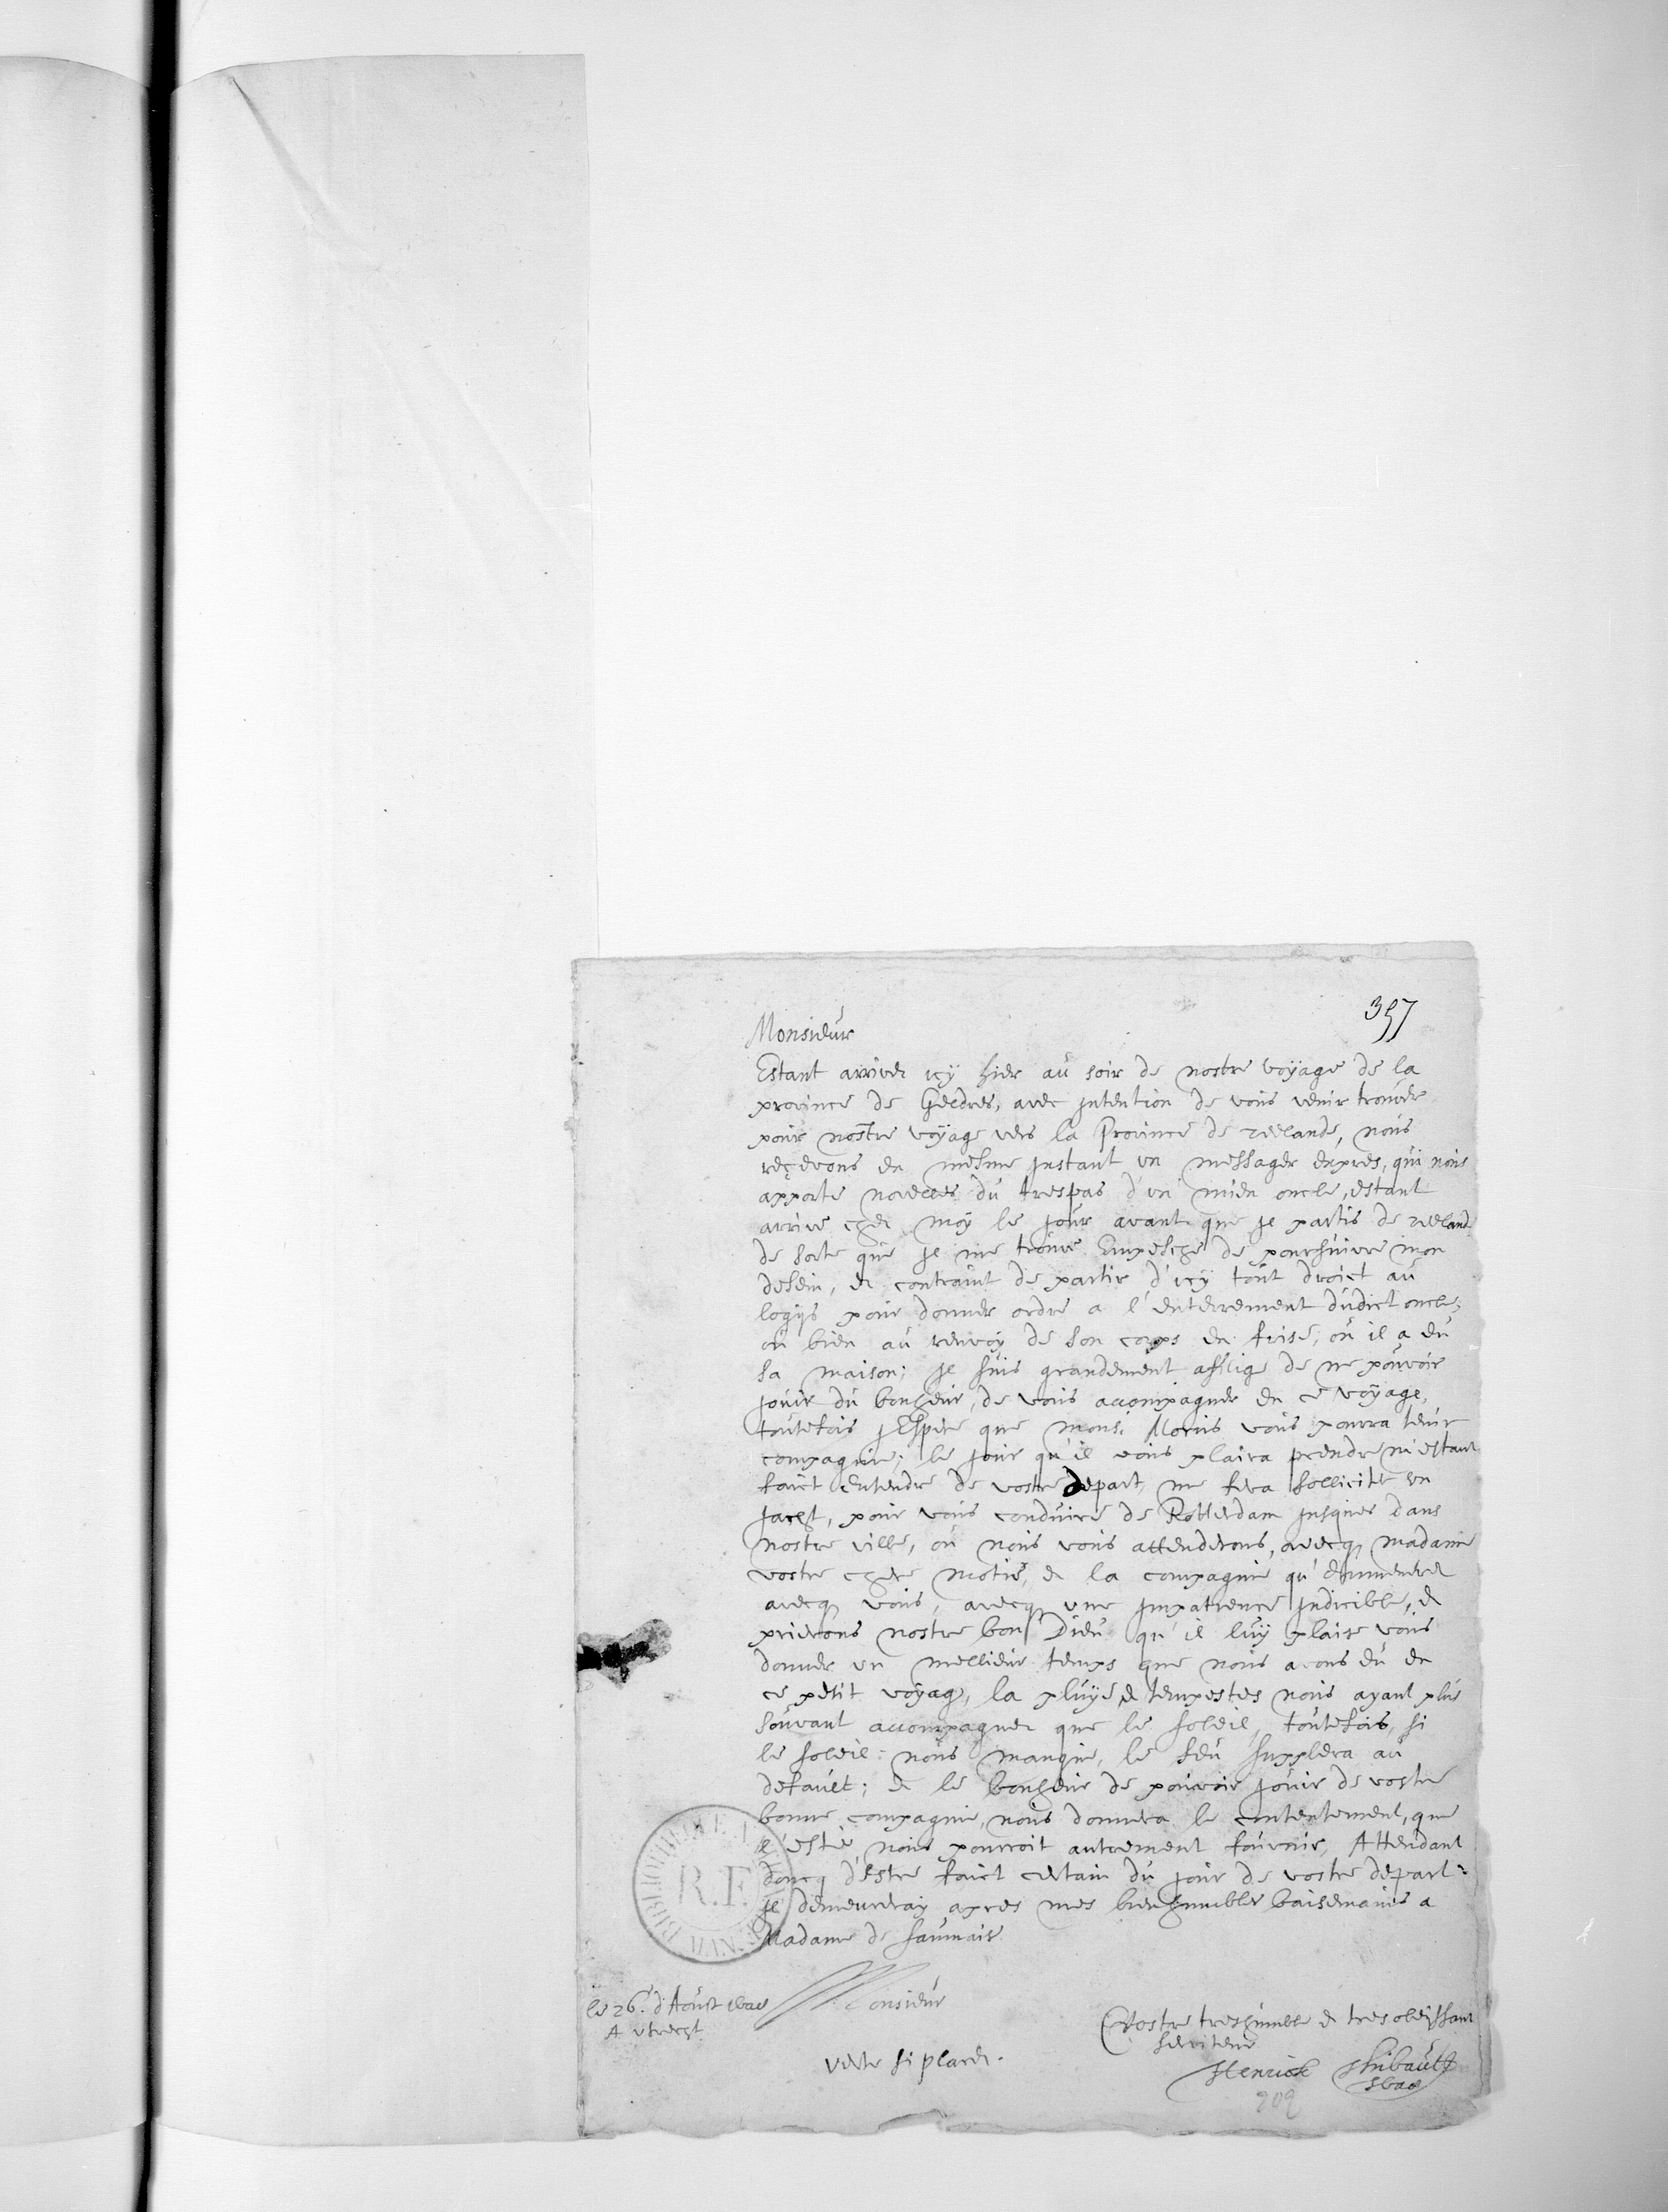 357
Monsieur
Estant arrivez icÿ hier au soir de nostre voÿage de la
province de Geldres, avec intention de vous venir trouver
pour nostre voÿage vers la Province de zeelande, nous
reçevons en mesme instant un messager expres, qui nous
apporte novelles du trespas d'un mien oncle, estant
arrive chez moÿ le jour avant que je partis de zeelande
de sorte que je me trouve Empesché de poursuivre mon
desein, et contraint de partir d'icÿ tout droict au
logÿs pour donner ordre a l'enterrement dudict oncle,
ou bien au renvoÿ de son corps en frise, où il a eu
sa maison; je suis grandement afflige de ne pouvoir
jouir du bonheur, de vous accompagner en ce voÿage,
toutefois j'Espere que mons. Morus vous pourra tenir
compagnie; le jour qu'il vous plaira prendre m'estant
faict entendre de vostre depart, me fera solliciter un
jacht, pour vous conduire de Rotterdam jusques dans
nostre ville, où nous vous attenderons, avecq madame
vostre chere motié, et la compagnie qu'emmenerez
avecq vous, avecq une impatience indicible, et
prierons nostre bon Dieu qu'il luÿ plaise vous
donner un mellieur temps que nous avons eu en
ce petit voÿage, la pluÿe et tempestes nous ayant plus
souvant accompagnez que le soleil, toutefois, si
le soleil nous manque, le feu supplera au
default; et le bonheur de pouvoir jouir de vostre
bonne compagnie, nous donnera le contentement, que
l'esté nous pourroit autrement fournir, Attendant
doncq d'estre faict certain du jour de vostre depart
je demeureraÿ apres mes bien humbles baisemains a
Madame de saumaise
Monsieur
le 26. d'Aoust
A utrecht
Vostre treshumble et tres obeissant
serviteur
Henrick Thibault
verte si placet.
R.F.